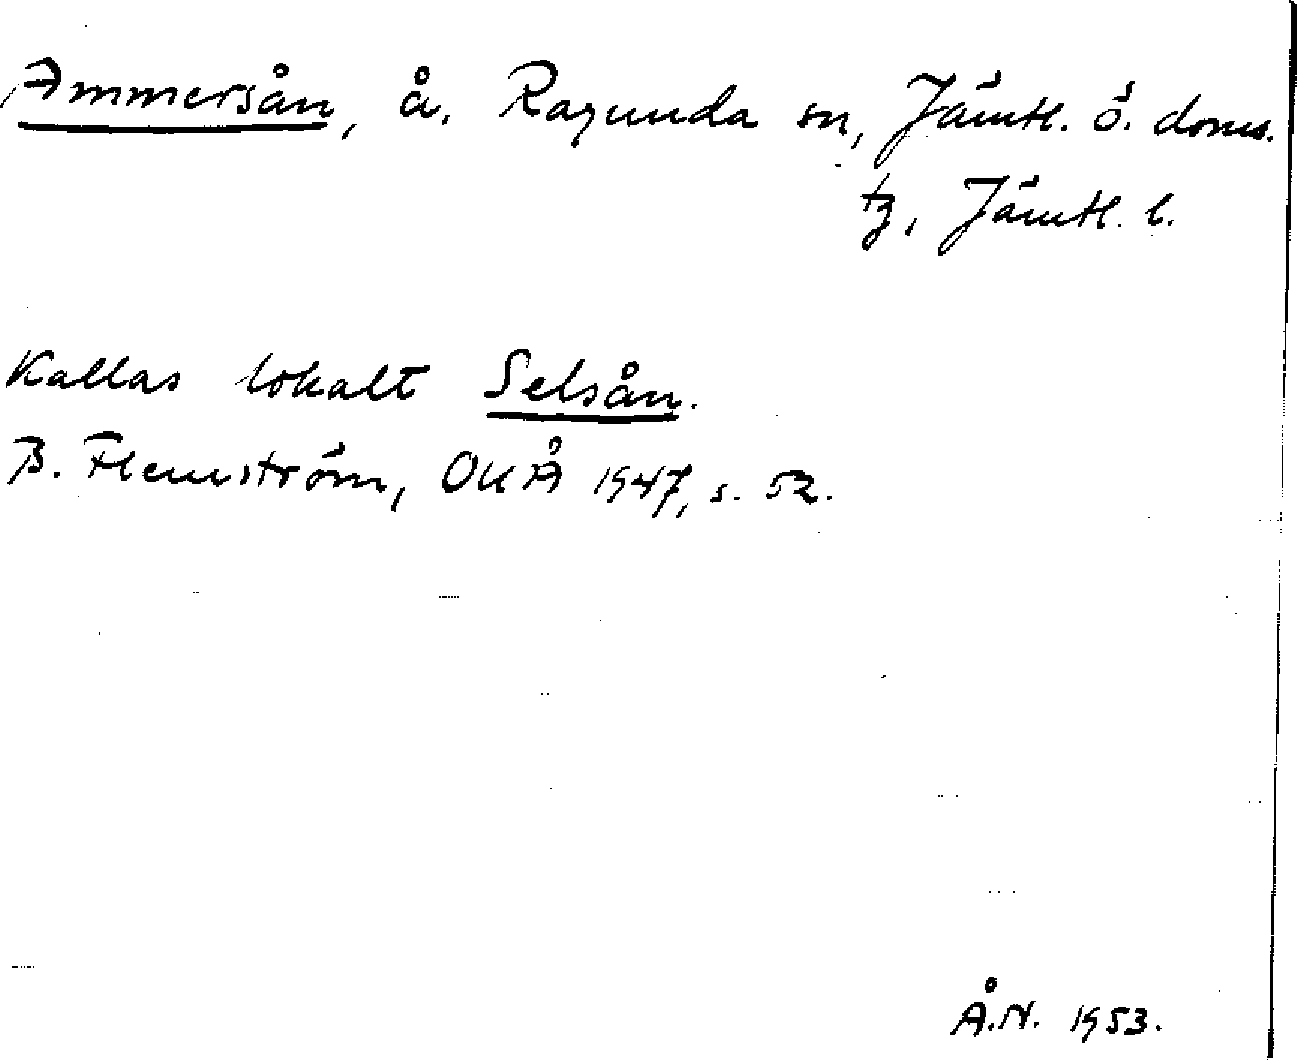 Ammersån, å. Ragunda sn, Jämtl. ö. doms.
tg, Jämtl. l.
Kallas lokalt Selsån.
B. Flemström, OUÅ 1947, s. 52.
Å.N. 1953.